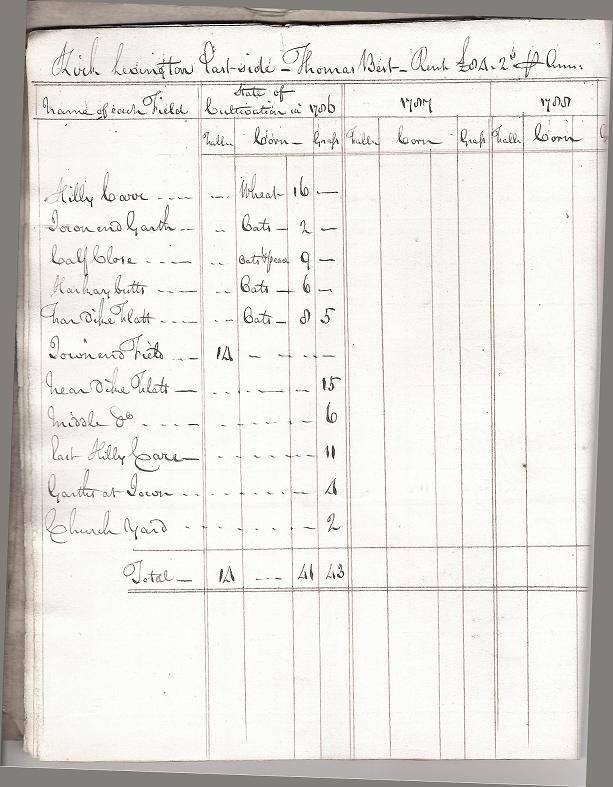 Kirk Levington East-side – Thomas Best – Rent £84.. 2s ⅌ Ann:
Name of each Field | State of Cultivation in 1786 | 1787 | 1788
Fallow | Corn – | Grass | Fallow | Corn | Grass | Fallow | Corn
Hilly Carre ---- | -- | Wheat - 16 | —
Town end Garth -- | -- | Oats – 2 | —
Calf Close ---- | -- | Oats & peas 9 | —
butts ---- | -- | Oats — 6 | —
Far Dike Flatt ---- | -- | Oats – 8 | 5
Town end Field --- | 14 | - - - | —
Near Dike Flatt — | - - - - - | 15
Middle Do ---- | - - - - - | 6
East Hilly Carre — | - - - - - | 11
Garths at Town -- | - - - - - | 4
Church Yard -- | - - - - - | 2
Total — | 14 | --- 41 | 43